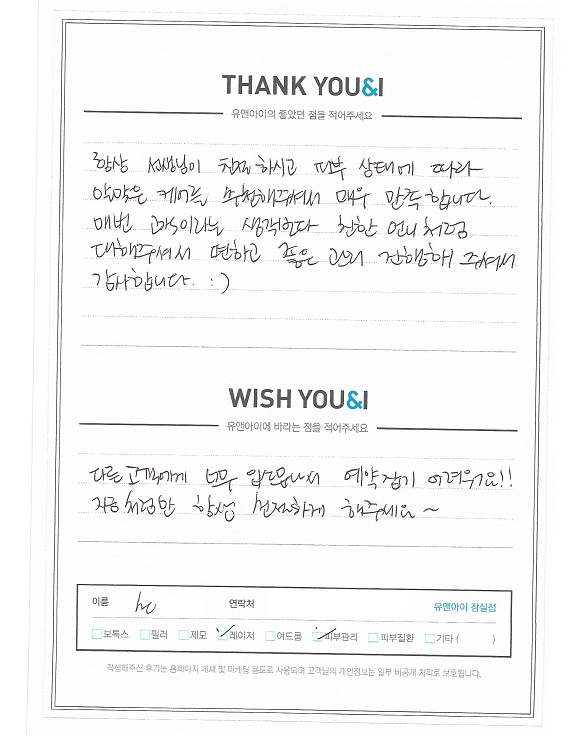 THANK YOU&I
유앤아이의 좋았던 점을 적어주세요
항상 선생님이 친절하시고 피부 상태에 따라
알맞은 케어를 추천해주셔서 매우 만족합니다.
매번 생각한다 친한 언니처럼
대해주셔서 편하고 좋은 관리 진행해 주셔서
감사합니다. :)
WISH YOU&I
유앤아이에 바라는 점을 적어주세요
다른 고객에게 너무 입소문나서 예약잡기 어려워요!!
지금처럼만 항상 친절하게 해주세요~
이름 연락처 유앤아이 잠실점
보톡스 필러 제모 레이저 여드름 피부관리 피부질환 기타 ( )
작성해주신 후기는 홈페이지 게재 및 마케팅 용도로 사용되며 고객님의 개인정보는 일부 비공개 처리로 보호됩니다.